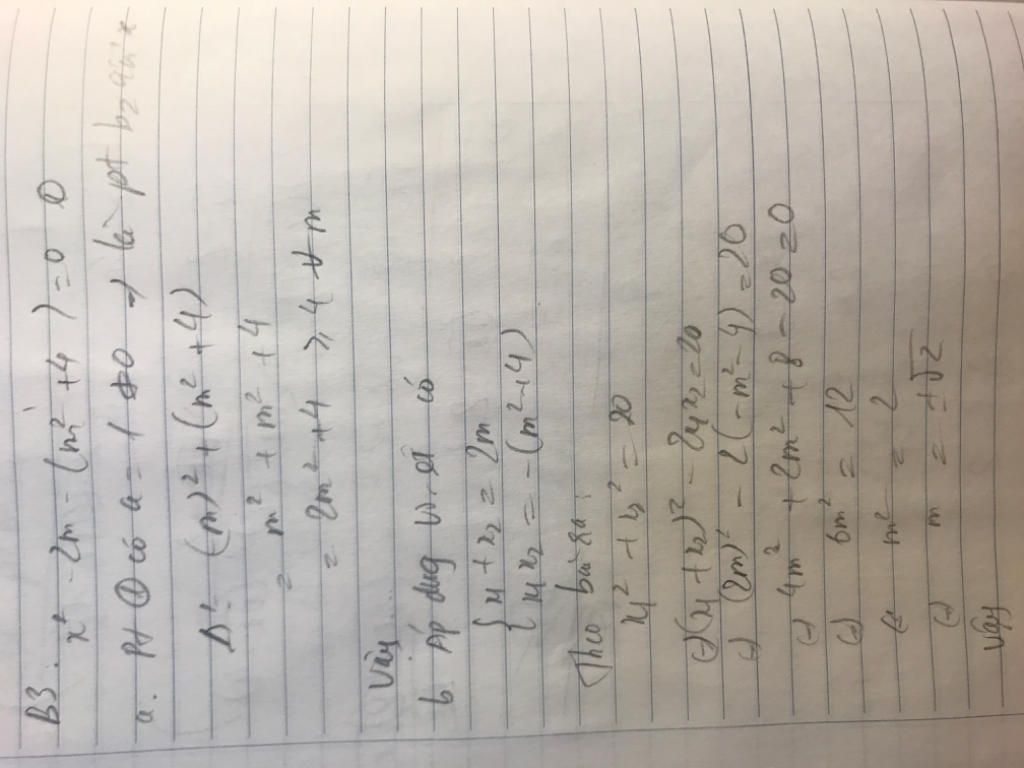 B3.
x² - 2m - (m² + 4) = 0 ①
a. Pt ① có a = 1 ≠ 0 → là pt b2 ẩn x
Δ' = (m)² + (m² + 4)
= m² + m² + 4
= 2m² + 4 ≥ 4 ∀ m
Vậy...
b Áp dụng vi-ét có
{ x1 + x2 = 2m
{ x1 x2 = -(m² + 4)
Theo bài ra:
x1² + x2² = 20
(=) (x1 + x2)² - 2x1x2 = 20
(=) (2m)² - 2(-m² - 4) = 20
(=) 4m² + 2m² + 8 - 20 = 0
(=) 6m² = 12
(=) m² = 2
(=) m = ±√2
Vậy